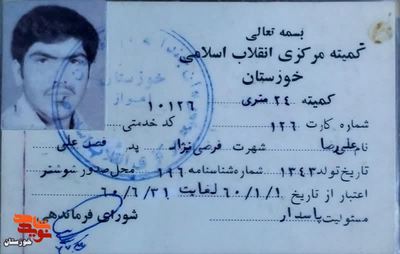 بسمه تعالی
کمیته مرکزی انقلاب اسلامی
خوزستان
کمیته ۲۴ متری ۱۰۱۲۶
شماره کارت ۱۲۶ کد خدمتی
نام علی رضا شهرت فرصی نژاد پدر فصد علی
تاریخ تولد ۱۳۴۳ شماره شناسنامه ۱۹۶ محل صدور شوشتر
اعتبار از تاریخ ۶۰/۱/۱ لغایت ۶۰/۶/۳۱
مسئولیت پاسدار شورای فرماندهی
خوزستان
نوید
خوزستان